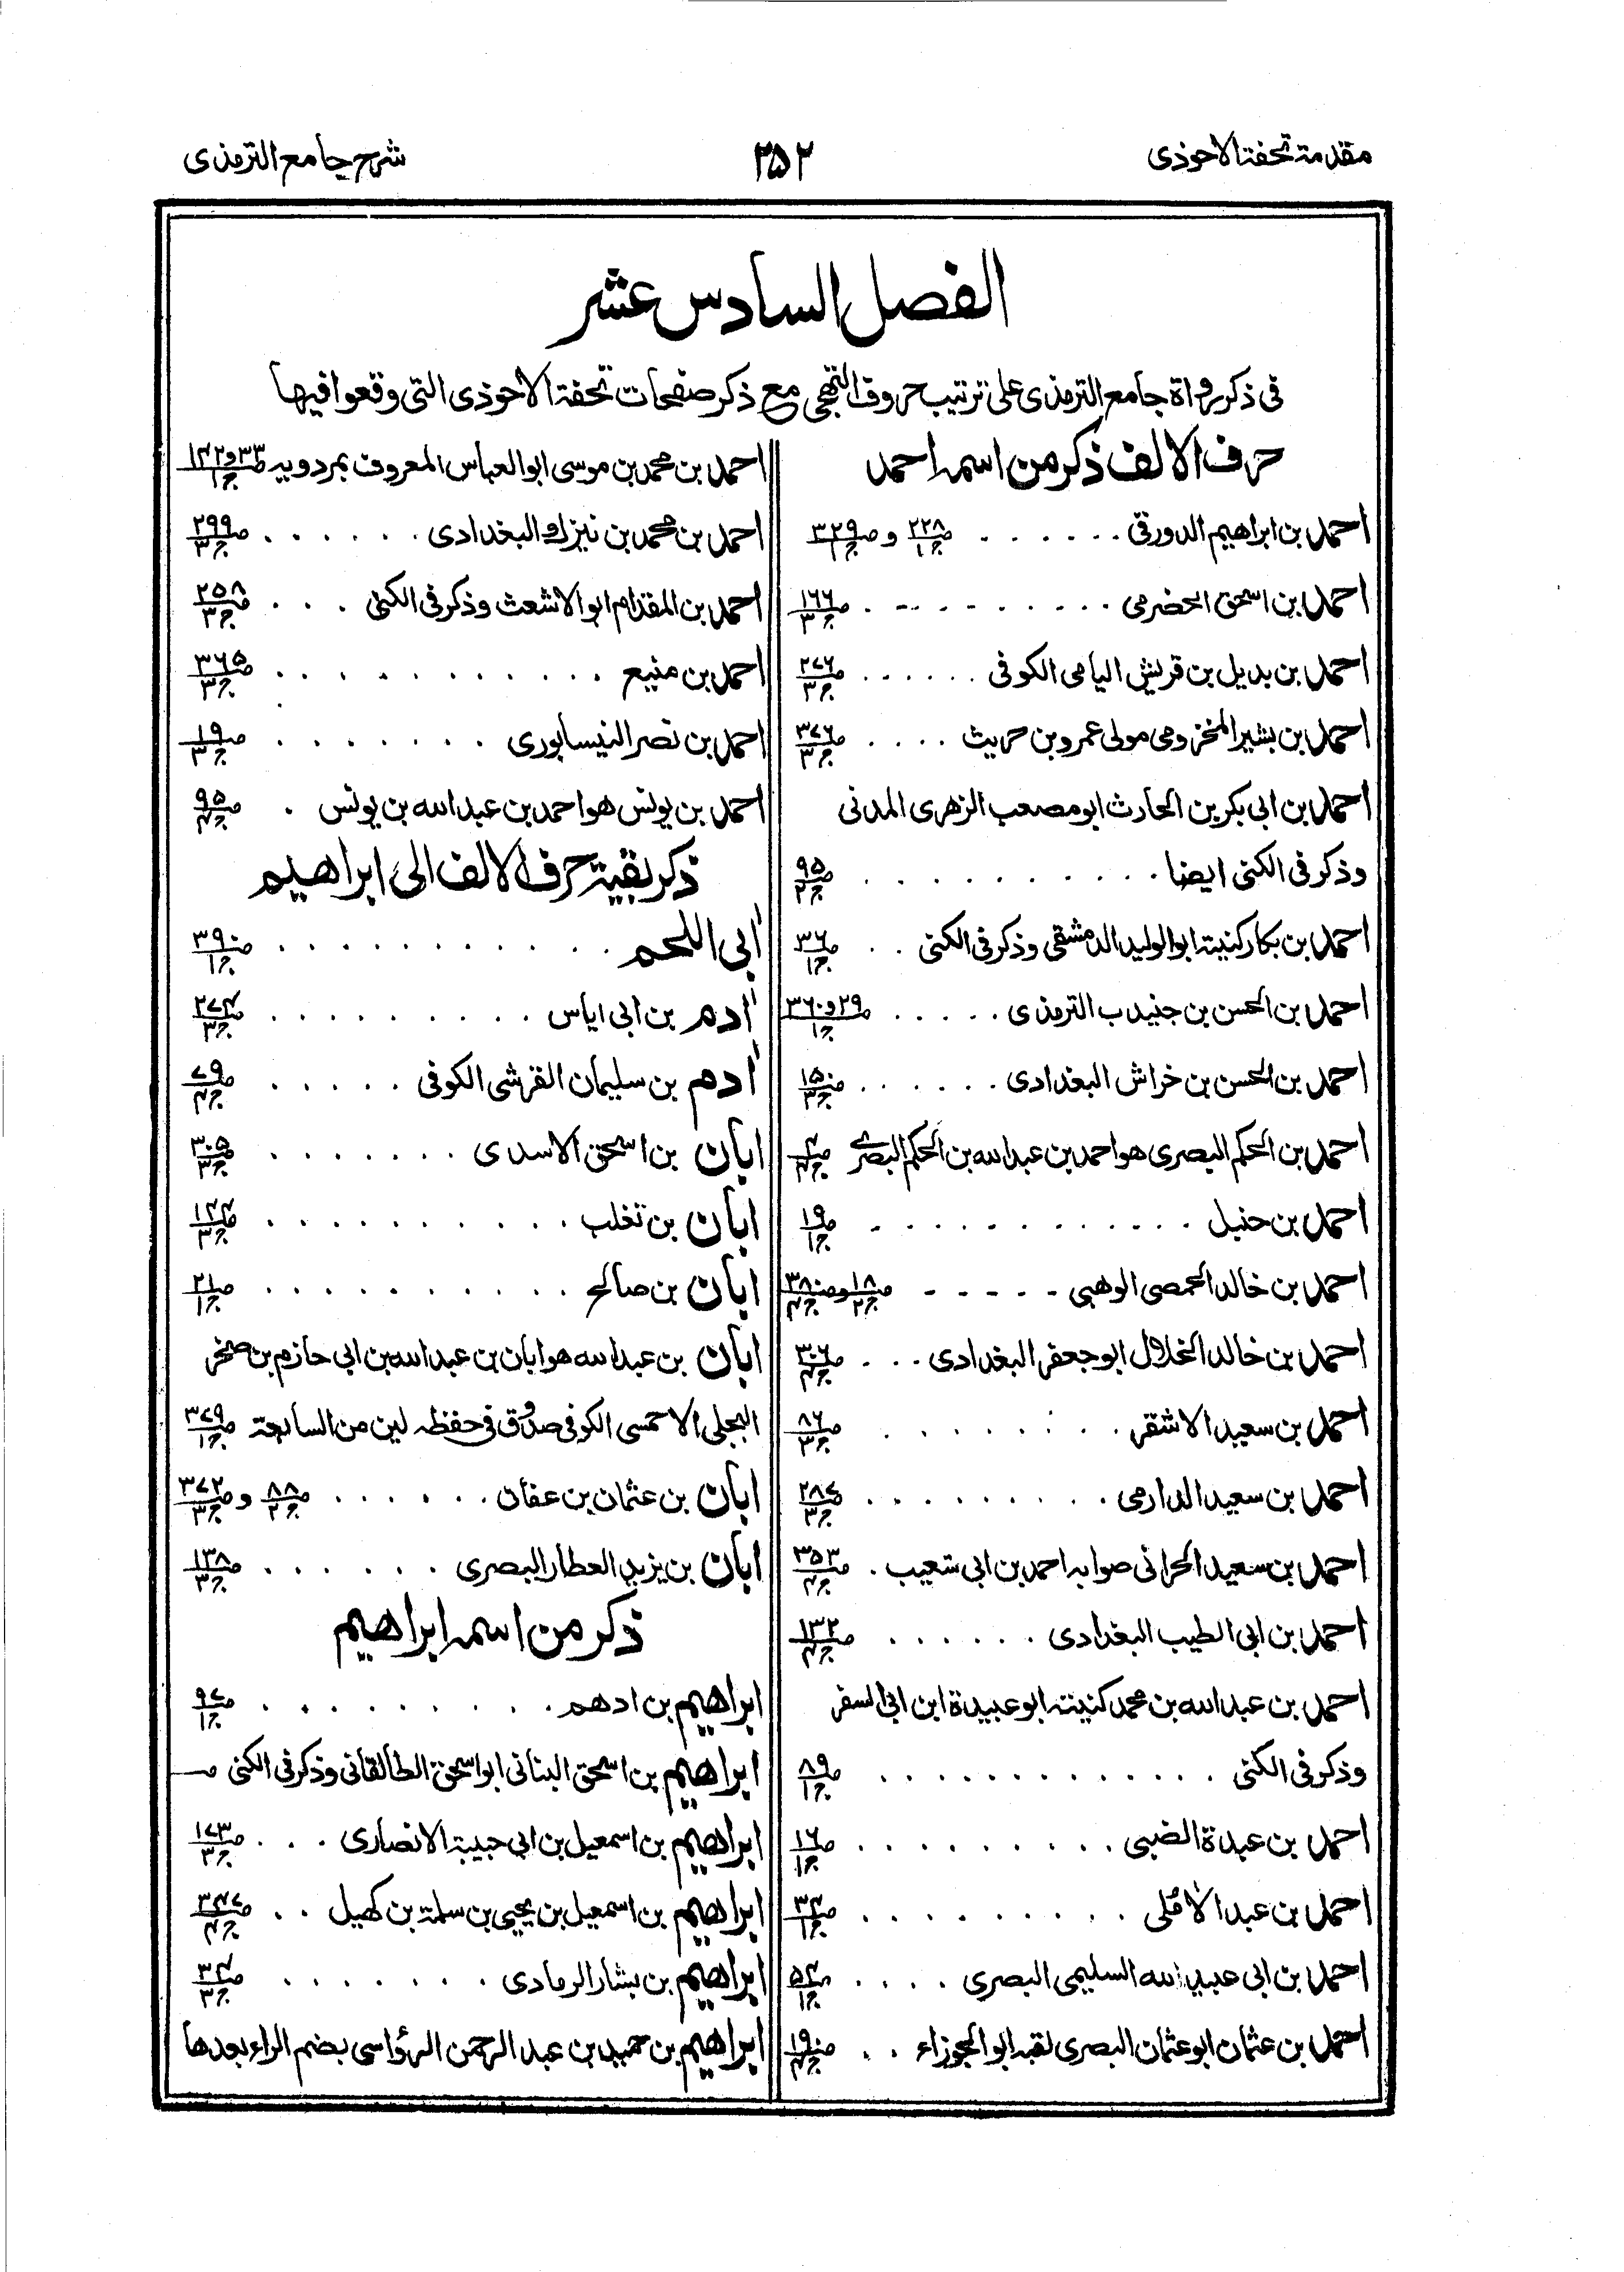 مقدمة تحفة الاحوذی
۲۵۲
شرح جامع الترمذی
الفصل السادس عشر
فی ذکر رواة جامع الترمذی علی ترتیب حروف التهجی مع ذکر صفحات تحفة الاحوذی التی وقعوا فیها
حرف الالف ذکر من اسمه احمد
احمد بن ابراهیم الدورقی . . . . . . ص۲۲۸ ج۱ و ص۳۲۹
احمد بن اسحق الحضرمی . . . . . . . . . ص۱۶۶ ج۳
احمد بن بدیل بن قریش الیامی الکوفی . . . . . . ص۲۷۶ ج۳
احمد بن بشیر المخزومی مولی عمرو بن حریث . . . . ص۳۷۶ ج۳
احمد بن ابی بکر بن الحارث ابو مصعب الزهری المدنی
وذکر فی الکنی ایضا . . . . . . . . . . ص۹۵ ج۲
احمد بن بکار کنیته ابو الولید الدمشقی وذکر فی الکنی . . ص۳۶ ج۱
احمد بن الحسن بن جنیدب الترمذی . . . . . ص۲۹ و ۳۶۰ ج۱
احمد بن الحسن بن خراش البغدادی . . . . . . ص۱۵۰ ج۳
احمد بن الحکم البصری هو احمد بن عبد الله بن الحکم البصری
احمد بن حنبل . . . . . . . . . . . ص۱۹ ج۱
احمد بن خالد الحمصی الوهبی - - - - - ص۱۸ ج۲ و ص۳۸۰ ج۴
احمد بن خالد الخلال ابو جعفر البغدادی . . . ص۳۰۶ ج۴
احمد بن سعید الاشقر . . . . . . . . ص۸۶ ج۳
احمد بن سعید الدارمی . . . . . . . . . ص۲۸۷ ج۳
احمد بن سعید الحرانی صوابه احمد بن ابی شعیب . ص۳۵۳ ج۴
احمد بن ابی الطیب البغدادی . . . . . . ص۱۳۲ ج۴
احمد بن عبد الله بن محمد کنیته ابو عبیدة ابن ابی السفر
وذکر فی الکنی . . . . . . . . . . . ص۸۹ ج۱
احمد بن عبدة الضبی . . . . . . . . . . ص۱۶ ج۱
احمد بن عبد الآملی . . . . . . . . . ص۳۴ ج۱
احمد بن ابی عبید الله السلیمی البصری . . . . ص۵۴ ج۱
احمد بن عثمان ابو عثمان البصری لقبه ابو الجوزاء . . ص۱۹۰ ج۴
احمد بن محمد بن موسی ابو العباس المعروف بمردویه ص۳۳ و ۱۴۲ ج۱
احمد بن محمد بن نیزك البغدادی . . . . . . ص۲۹۹ ج۳
احمد بن المقدام ابو الاشعث وذکر فی الکنی . . . ص۲۵۸ ج۳
احمد بن منیع . . . . . . . . . . . ص۳۶۵ ج۳
احمد بن نصر النیسابوری . . . . . . . ص۱۹ ج۳
احمد بن یونس هو احمد بن عبد الله بن یونس . ص۹۵ ج۴
ذکر بقیة حرف الالف الی ابراهیم
آبی اللحم . . . . . . . . . . . ص۳۹۰ ج۱
آدم بن ابی ایاس . . . . . . . . . ص۲۷۴ ج۳
آدم بن سلیمان القرشی الکوفی . . . . . ص۷۹ ج۴
ابان بن اسحق الاسدی . . . . . . . ص۳۰۵ ج۳
ابان بن تغلب . . . . . . . . . . ص۱۴۴ ج۳
ابان بن صالح . . . . . . . . . . ص۲۱ ج۱
ابان بن عبد الله هو ابان بن عبد الله بن ابی حازم بن صخر
البجلی الاحمسی الکوفی صدوق فی حفظه لین من السابعة ص۳۷۹ ج۱
ابان بن عثمان بن عفان . . . . . . ص۸۸ ج۲ و ص۳۷۲ ج۳
ابان بن یزید العطار البصری . . . . . . ص۱۳۸ ج۳
ذکر من اسمه ابراهیم
ابراهیم بن ادهم . . . . . . . . . ص۹۷ ج۱
ابراهیم بن اسحق البنانی ابو اسحق الطالقانی وذکر فی الکنی ص
ابراهیم بن اسمعیل بن ابی حبیبة الانصاری . . . ص۱۷۳ ج۳
ابراهیم بن اسمعیل بن یحیی بن سلمة بن کهیل . . ص۳۴۷ ج۴
ابراهیم بن بشار الرمادی . . . . . . . ص۳۴ ج۳
ابراهیم بن حمید بن عبد الرحمن الرؤاسی بضم الراء بعدها